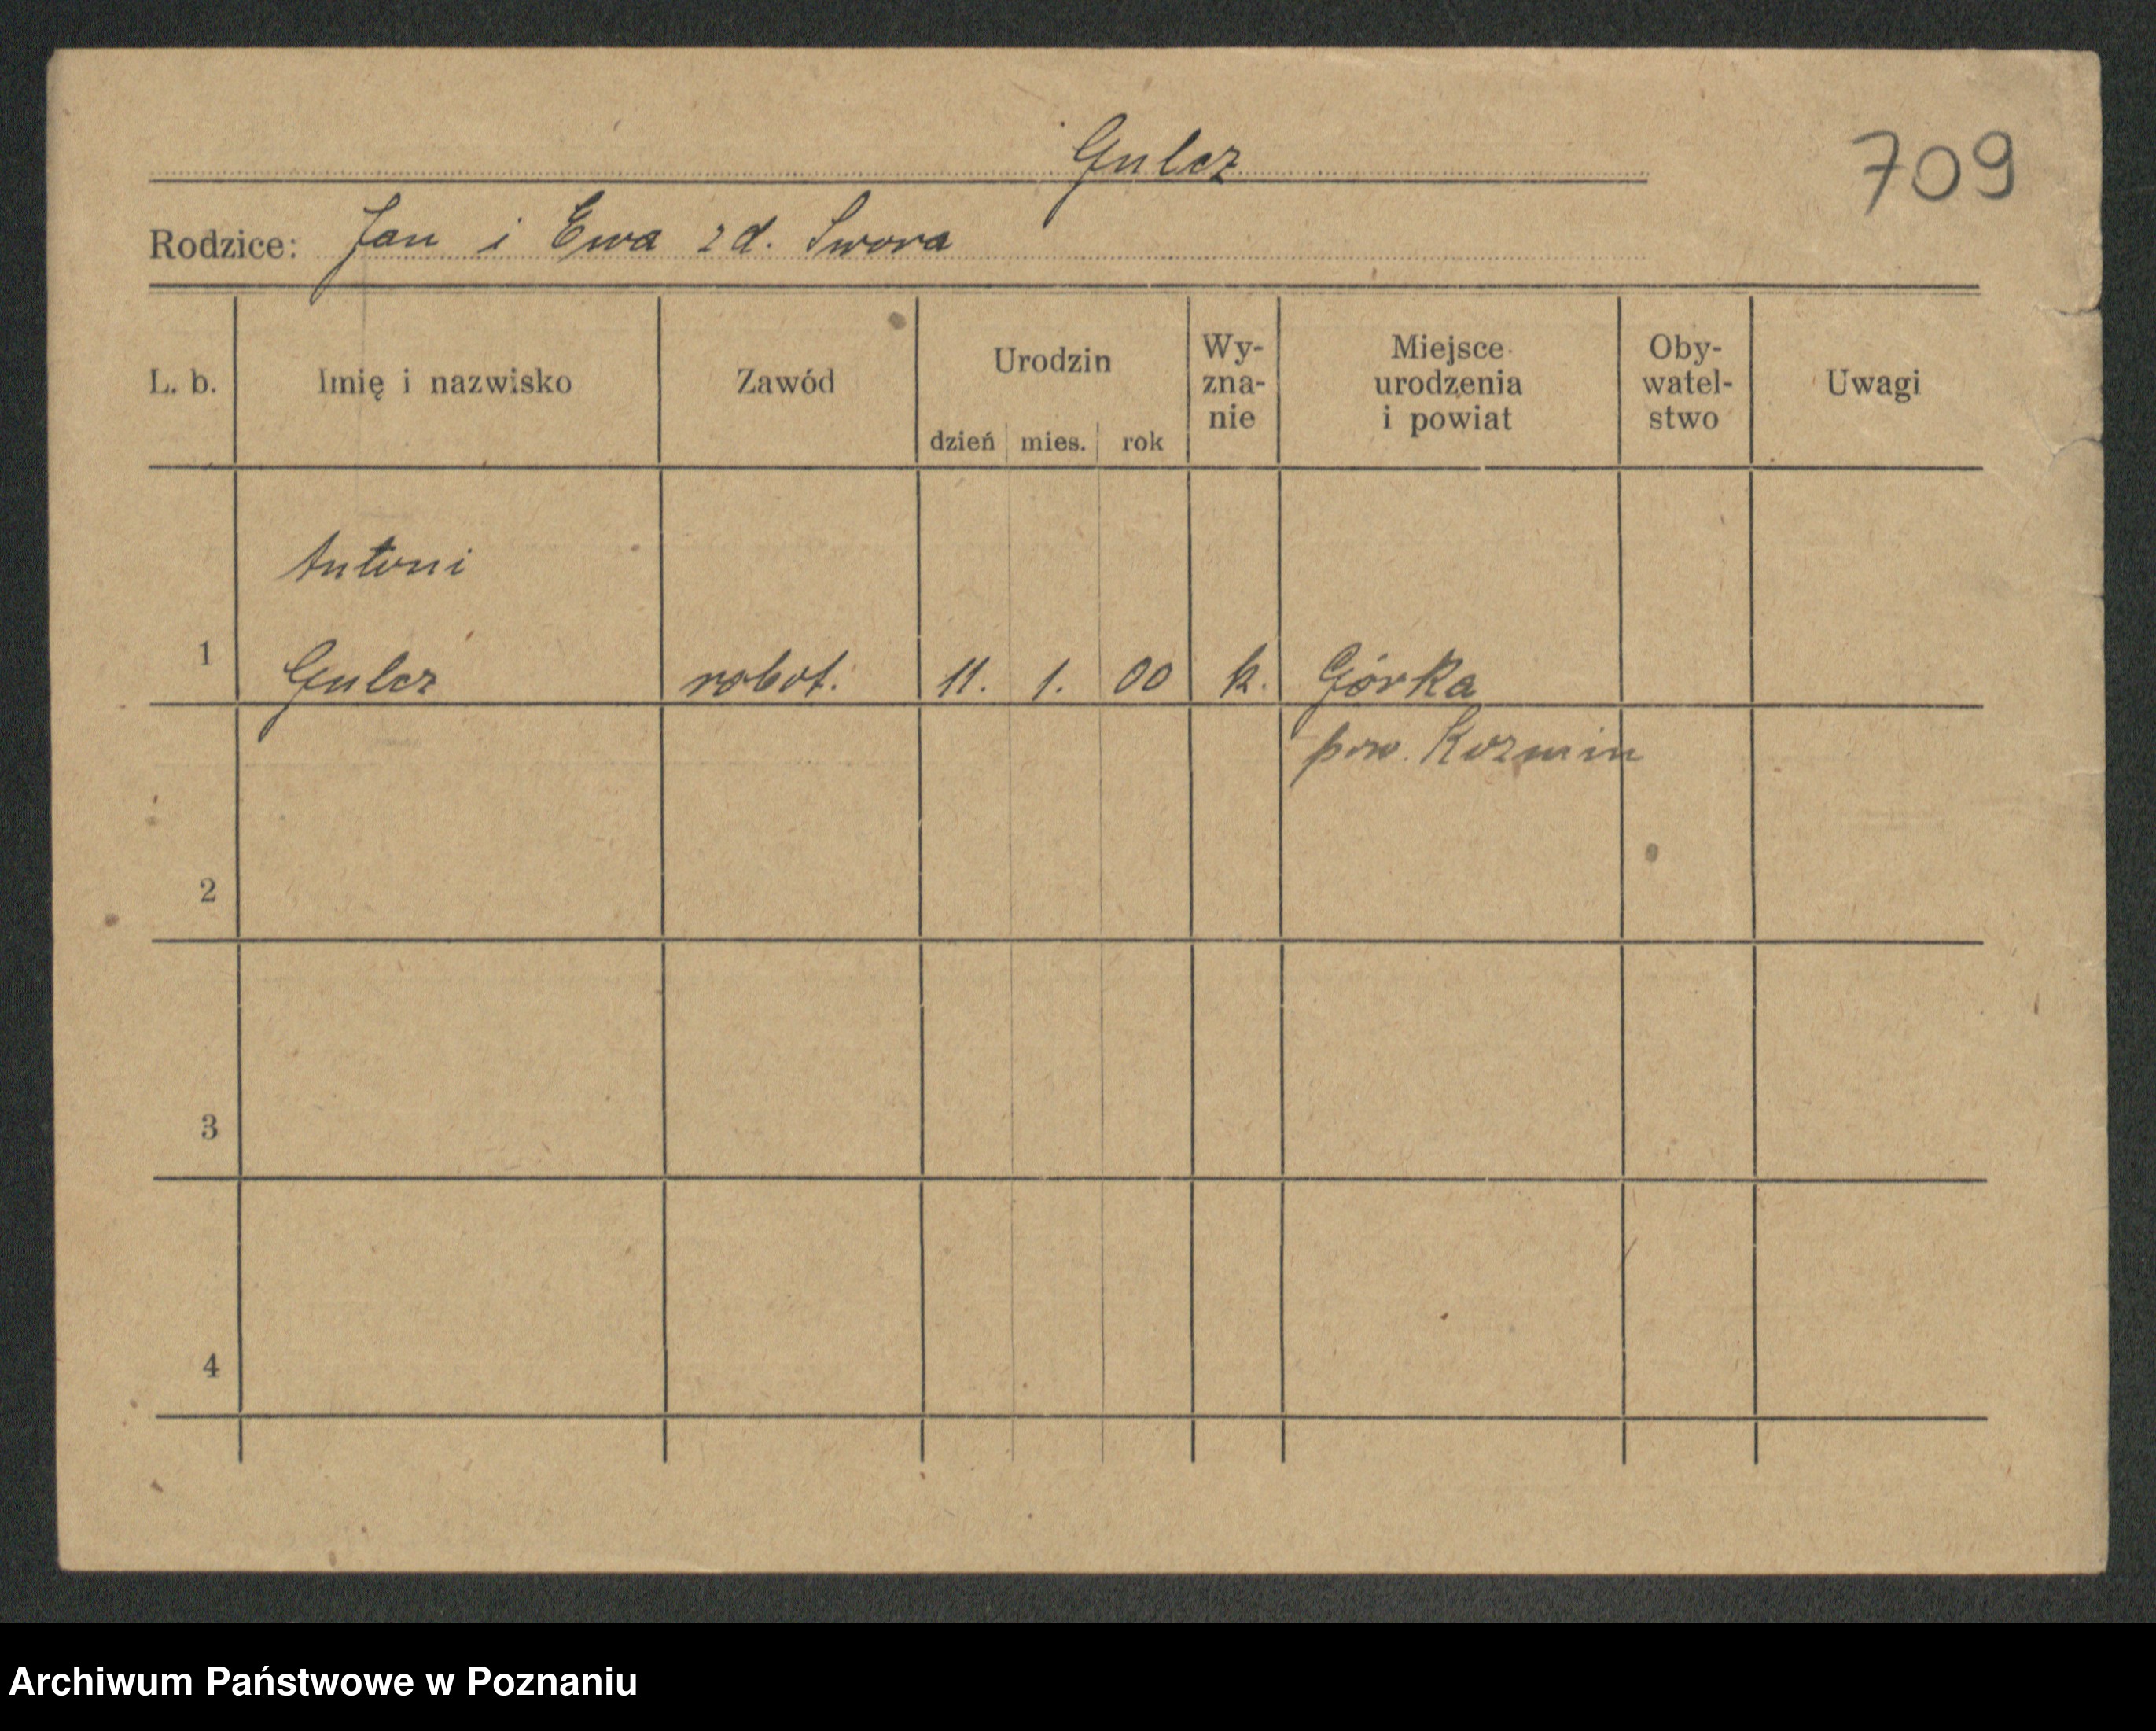 Gulcz
709
Rodzice: Jan i Ewa zd. Swora
L. b. Imię i nazwisko Zawód Urodzin dzień mies. rok Wy-zna-nie Miejsce urodzenia i powiat Oby-watel-stwo Uwagi
Antoni
1 Gulcz robot. 11. 1. 00 k. Górka
pow. Kozmin
2
3
4
Archiwum Państwowe w Poznaniu